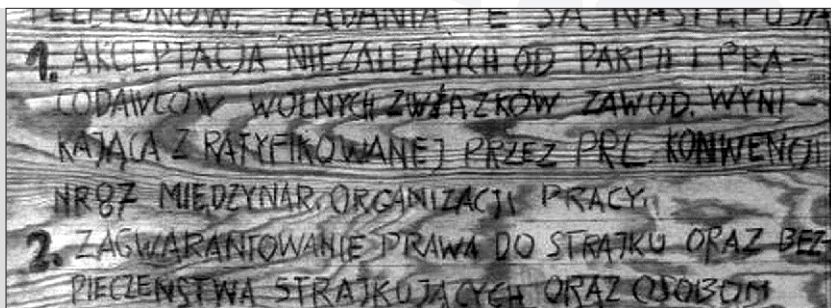 TELEFONÓW. ŻĄDANIA TE SĄ NASTĘPUJĄ
1. AKCEPTACJA NIEZALEŻNYCH OD PARTII I PRA-
CODAWCÓW WOLNYCH ZWIĄZKÓW ZAWOD. WYNI-
KAJĄCA Z RATYFIKOWANEJ PRZEZ PRL KONWENCJI
NR 87 MIĘDZYNAR. ORGANIZACJI PRACY.
2. ZAGWARANTOWANIE PRAWA DO STRAJKU ORAZ BEZ-
PIECZEŃSTWA STRAJKUJĄCYCH ORAZ OSOBOM